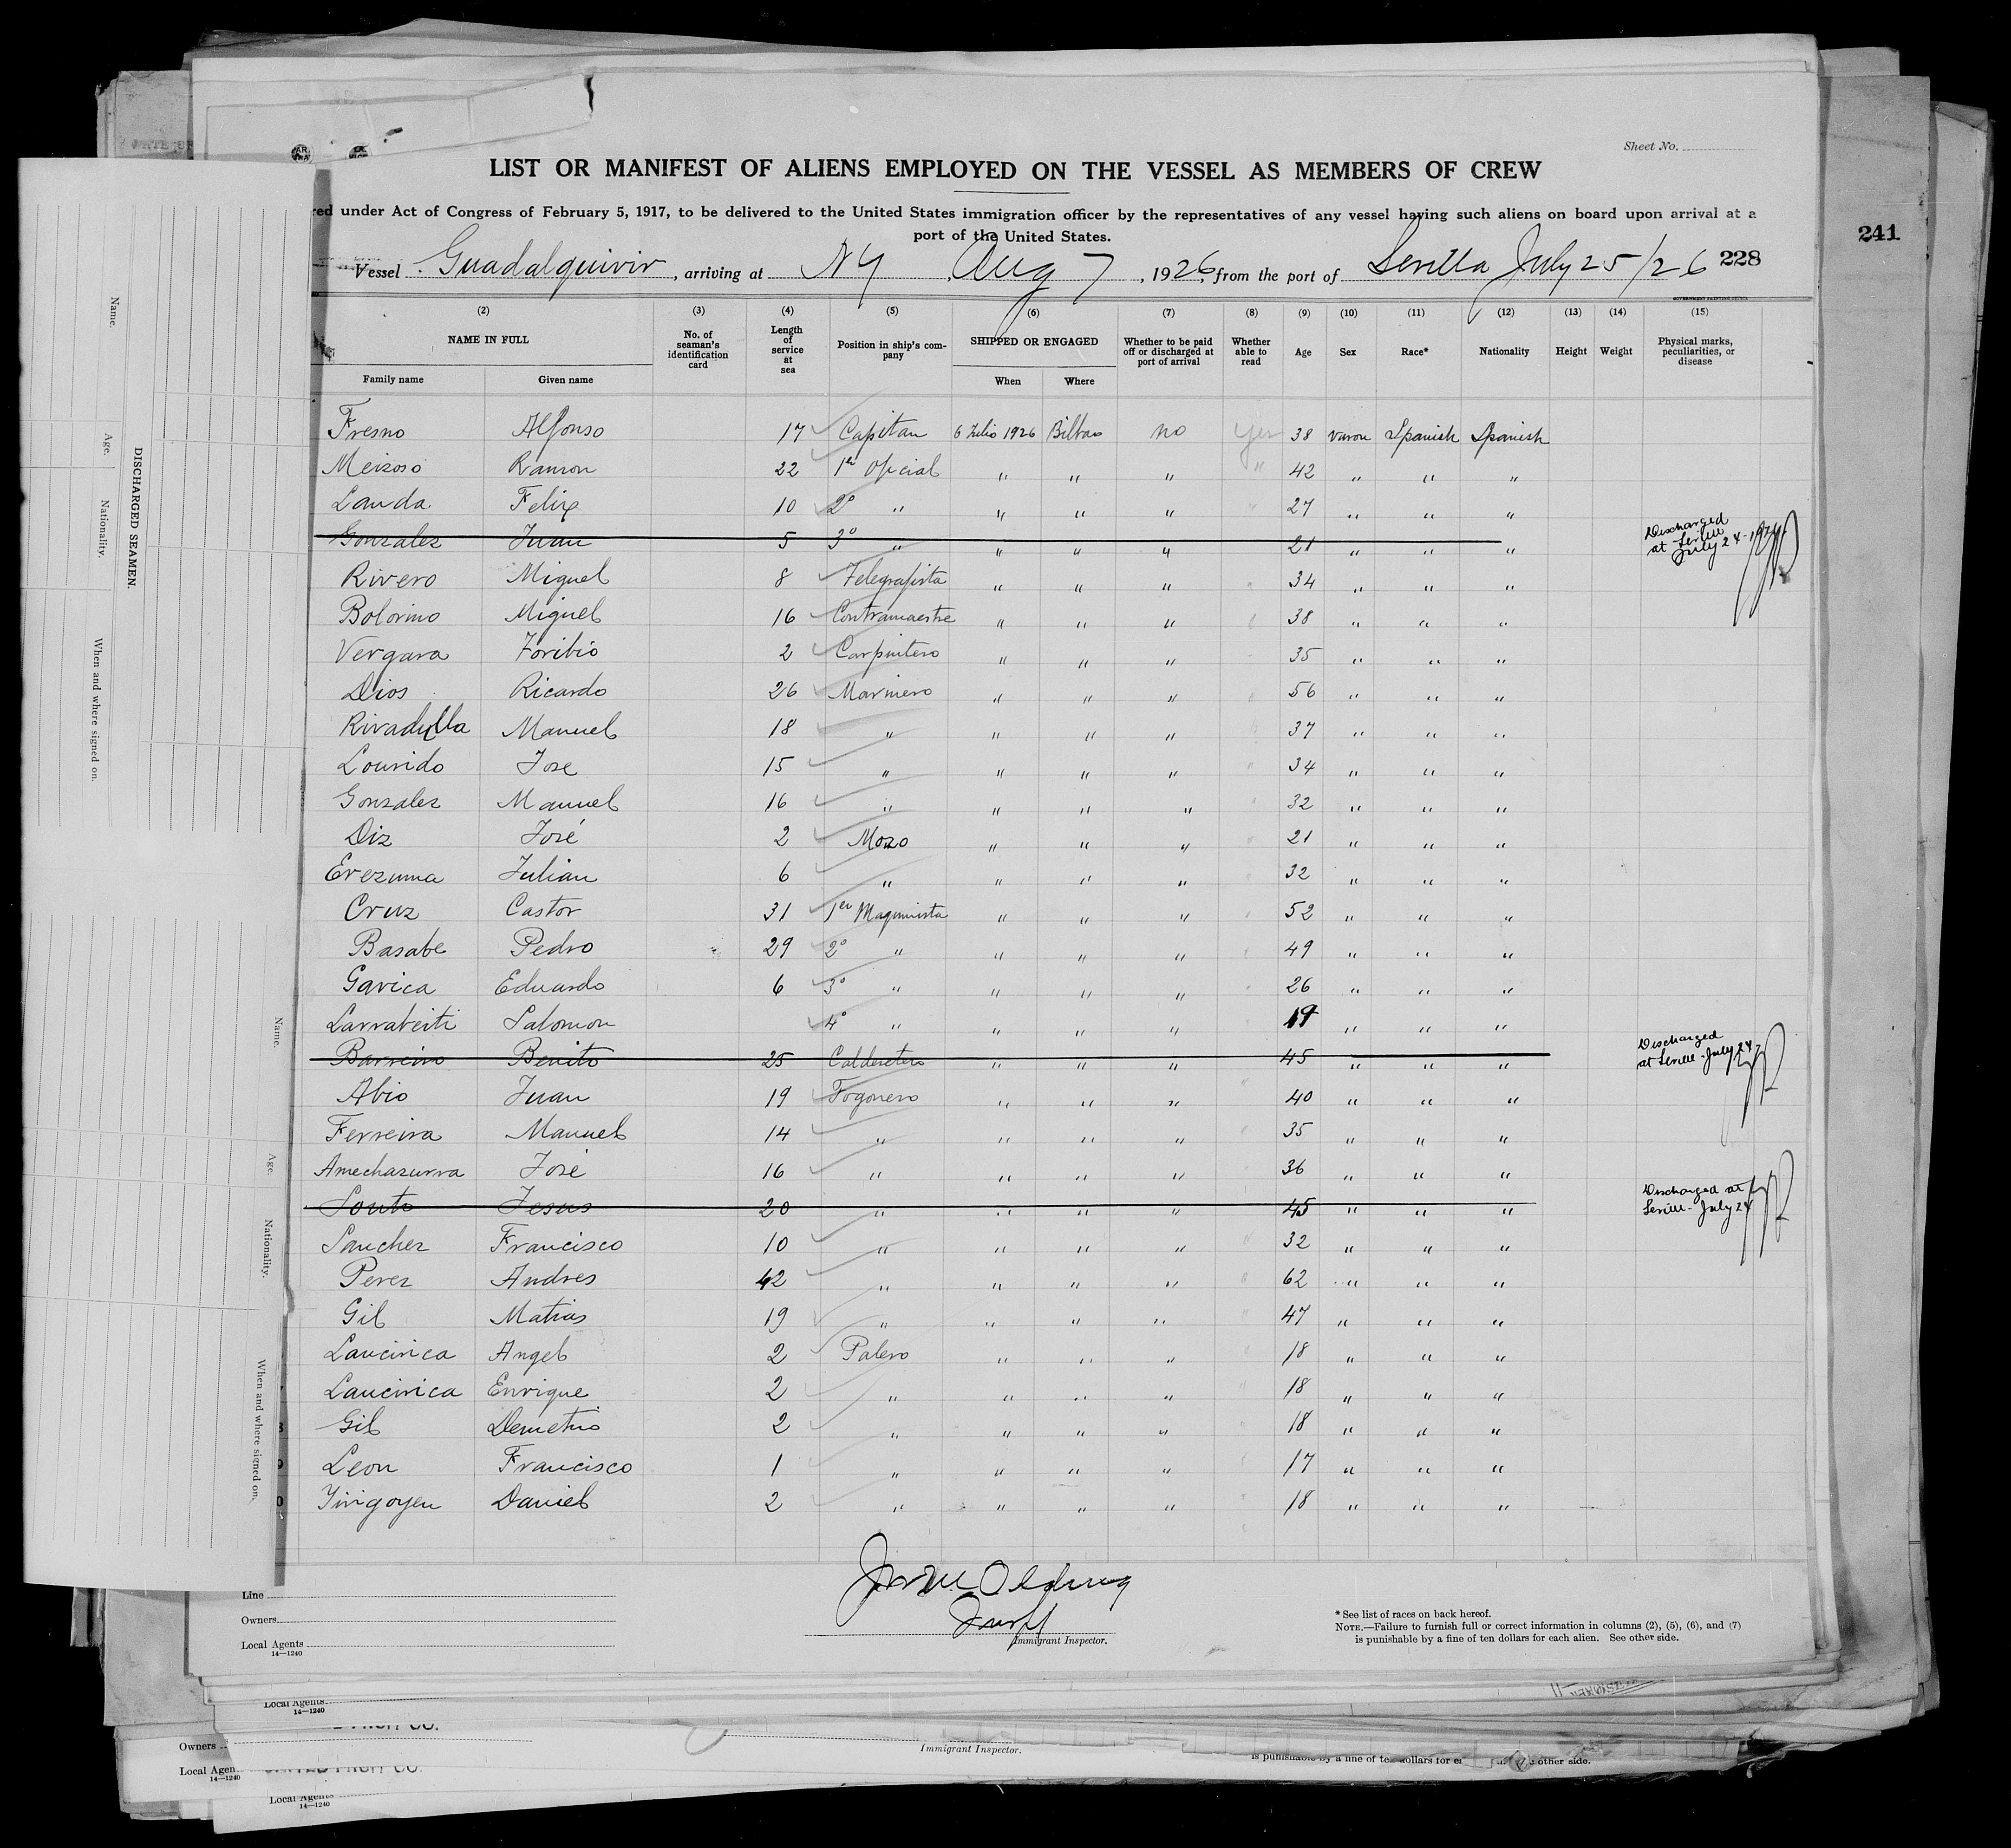 Sheet No.
LIST OR MANIFEST OF ALIENS EMPLOYED ON THE VESSEL AS MEMBERS OF CREW
red under Act of Congress of February 5, 1917, to be delivered to the United States immigration officer by the representatives of any vessel having such aliens on board upon arrival at a
port of the United States.
241
Vessel Guadalquivir, arriving at NY, Aug 7, 1926, from the port of Sevilla July 25/26 228
(2) (3) (4) (5) (6) (7) (8) (9) (10) (11) (12) (13) (14) (15)
NAME IN FULL No. of seaman's identification card Length of service at sea Position in ship's company SHIPPED OR ENGAGED Whether to be paid off or discharged at port of arrival Whether able to read Age Sex Race* Nationality Height Weight Physical marks, peculiarities, or disease
Family name Given name When Where
Fresno Alfonso 17 Capitan 6 Julio 1926 Bilbao no yes 38 varon Spanish Spanish
Meizoso Ramon 22 1er Oficial " " " " 42 " " "
Landa Felix 10 2º " " " " " 27 " " "
Gonzalez Juan 5 3º " " " " 21 " " " Discharged at Seville July 24-1926
Rivero Miguel 8 Telegrafista " " " " 34 " " "
Bolorino Miguel 16 Contramaestre " " " " 38 " " "
Vergara Toribio 2 Carpintero " " " " 35 " " "
Dios Ricardo 26 Marinero " " " " 56 " " "
Rivadulla Manuel 18 " " " " " 37 " " "
Lourido Jose 15 " " " " " 34 " " "
Gonzalez Manuel 16 " " " " " 32 " " "
Diz José 2 Mozo " " " " 21 " " "
Erezuma Julian 6 " " " " " 32 " " "
Cruz Castor 31 1er Maquinista " " " " 52 " " "
Basabe Pedro 29 2º " " " " " 49 " " "
Gavica Eduardo 6 3º " " " " " 26 " " "
Larrabeiti Salomon 4º " " " " 19 " " "
Barreiro Benito 25 Calderetero " " " 45 " " " Discharged at Seville - July 24
Abio Juan 19 Fogonero " " " " 40 " " "
Ferreira Manuel 14 " " " " " 35 " " "
Amechazurra José 16 " " " " 36 " " "
Souto Jesus 20 " " " " 45 " " " Discharged at Seville - July 24
Sanchez Francisco 10 " " " " " 32 " " "
Perez Andres 42 " " " " " 62 " " "
Gil Matias 19 " " " " " 47 " " "
Laucirica Angel 2 Palero " " " " 18 " " "
Laucirica Enrique 2 " " " " " 18 " " "
Gil Demetrio 2 " " " " " 18 " " "
Leon Francisco 1 " " " " " 17 " " "
Yirigoyen Daniel 2 " " " " 18 " " "
DISCHARGED SEAMEN.
Name.
Age.
Nationality.
When and where signed on.
Name.
Age.
Nationality.
When and where signed on.
Line
Owners
Local Agents
14—1240
Immigrant Inspector.
* See list of races on back hereof.
NOTE.—Failure to furnish full or correct information in columns (2), (5), (6), and (7)
is punishable by a fine of ten dollars for each alien. See other side.
Local Agents
14—1240
Owners
Immigrant Inspector.
is punishable by a fine of ten dollars for other side.
Local Agen
14—1240
Local Agents
14—1240